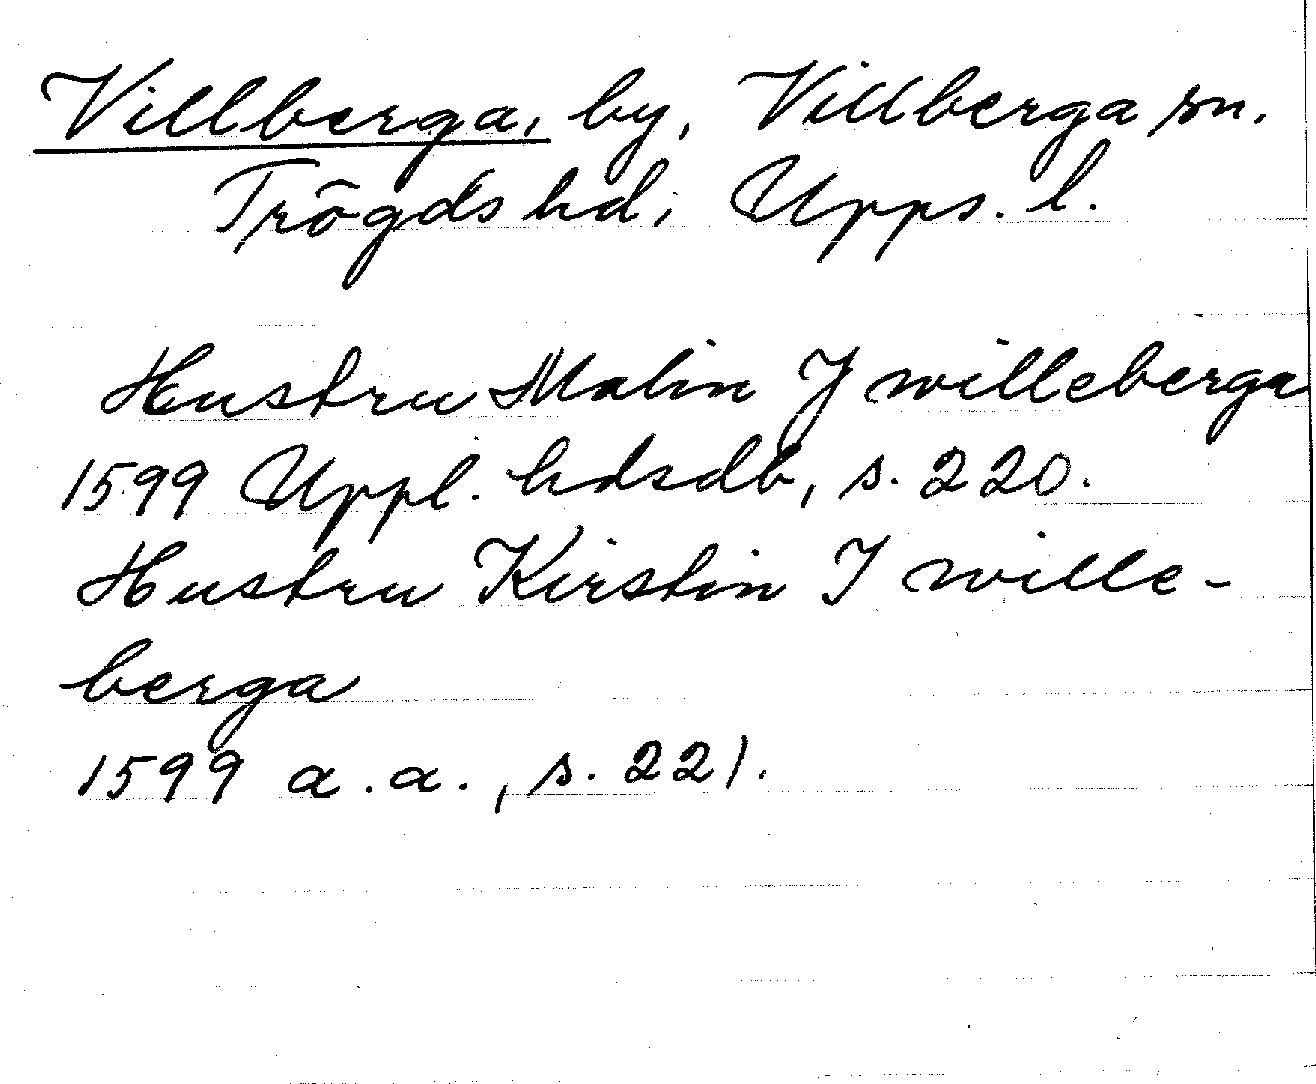 Villberga, by, Villberga sn.
Trögds hd, Upps. l.
Hustru Malin J willeberga
1599 Uppl. hdsdb, s. 220.
Hustru Kirstin J wille-
berga
1599 a.a., s. 221.